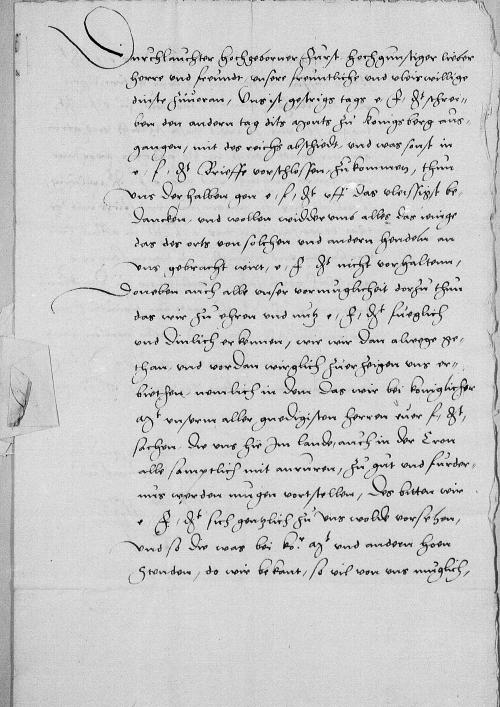 Durchlauchter hochgeborner Furst hochgunstiger lieber
herre und freundt, unsere freuntliche und vleiswillige
dinste zuvoran, Uns ist gestrigs tags e f g schrei-
ben den andern tag dits monts zu konigsberg aus-
gangen, mit des reichs abschiedt, und was sust in
e, f, g brieffe vorschlossen, zukommen, thun
uns der halben gen e, f, g uff das vleissigst be-
dancken, und wollen widderumb alles das jenige
das des orts von solchen und andern hendeln an
uns gebracht wirt, e, f g nicht vorhalten,
Doneben auch alle unser vormuglicheit dorzu thun
das wir zu ehren und nutz e, f, g fueglich
und dinlich erkennen, wie wir dan alwege ge-
than, und vordan wirglich zuerzeigen uns er-
biethen, nemlich in dem das wir bei koniglicher
Mt unserm aller gnedigisten herren euer f, g,
sachen, die uns hie Im lande, auch in der Cron
alle samptlich mit anruren, zu gut und furder-
nus werden mugen vortstellen, Des bitten wir
e, f, g sich gentzlich zu uns wolde vorsehen,
Und so die was bei ko.r Mt und andern hoen
Stenden, do wir bekant, so vil von uns muglich,